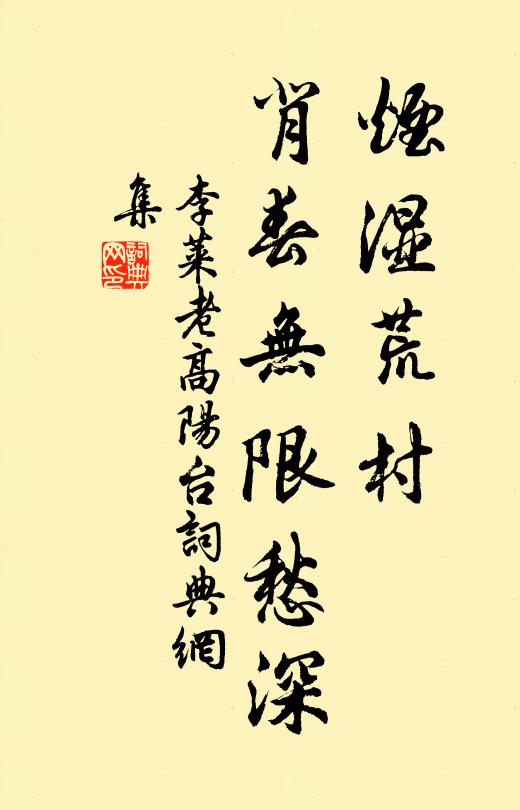 煙湿荒村
背春無限愁深
李萊老高陽台詞典網
集
詞典
网印